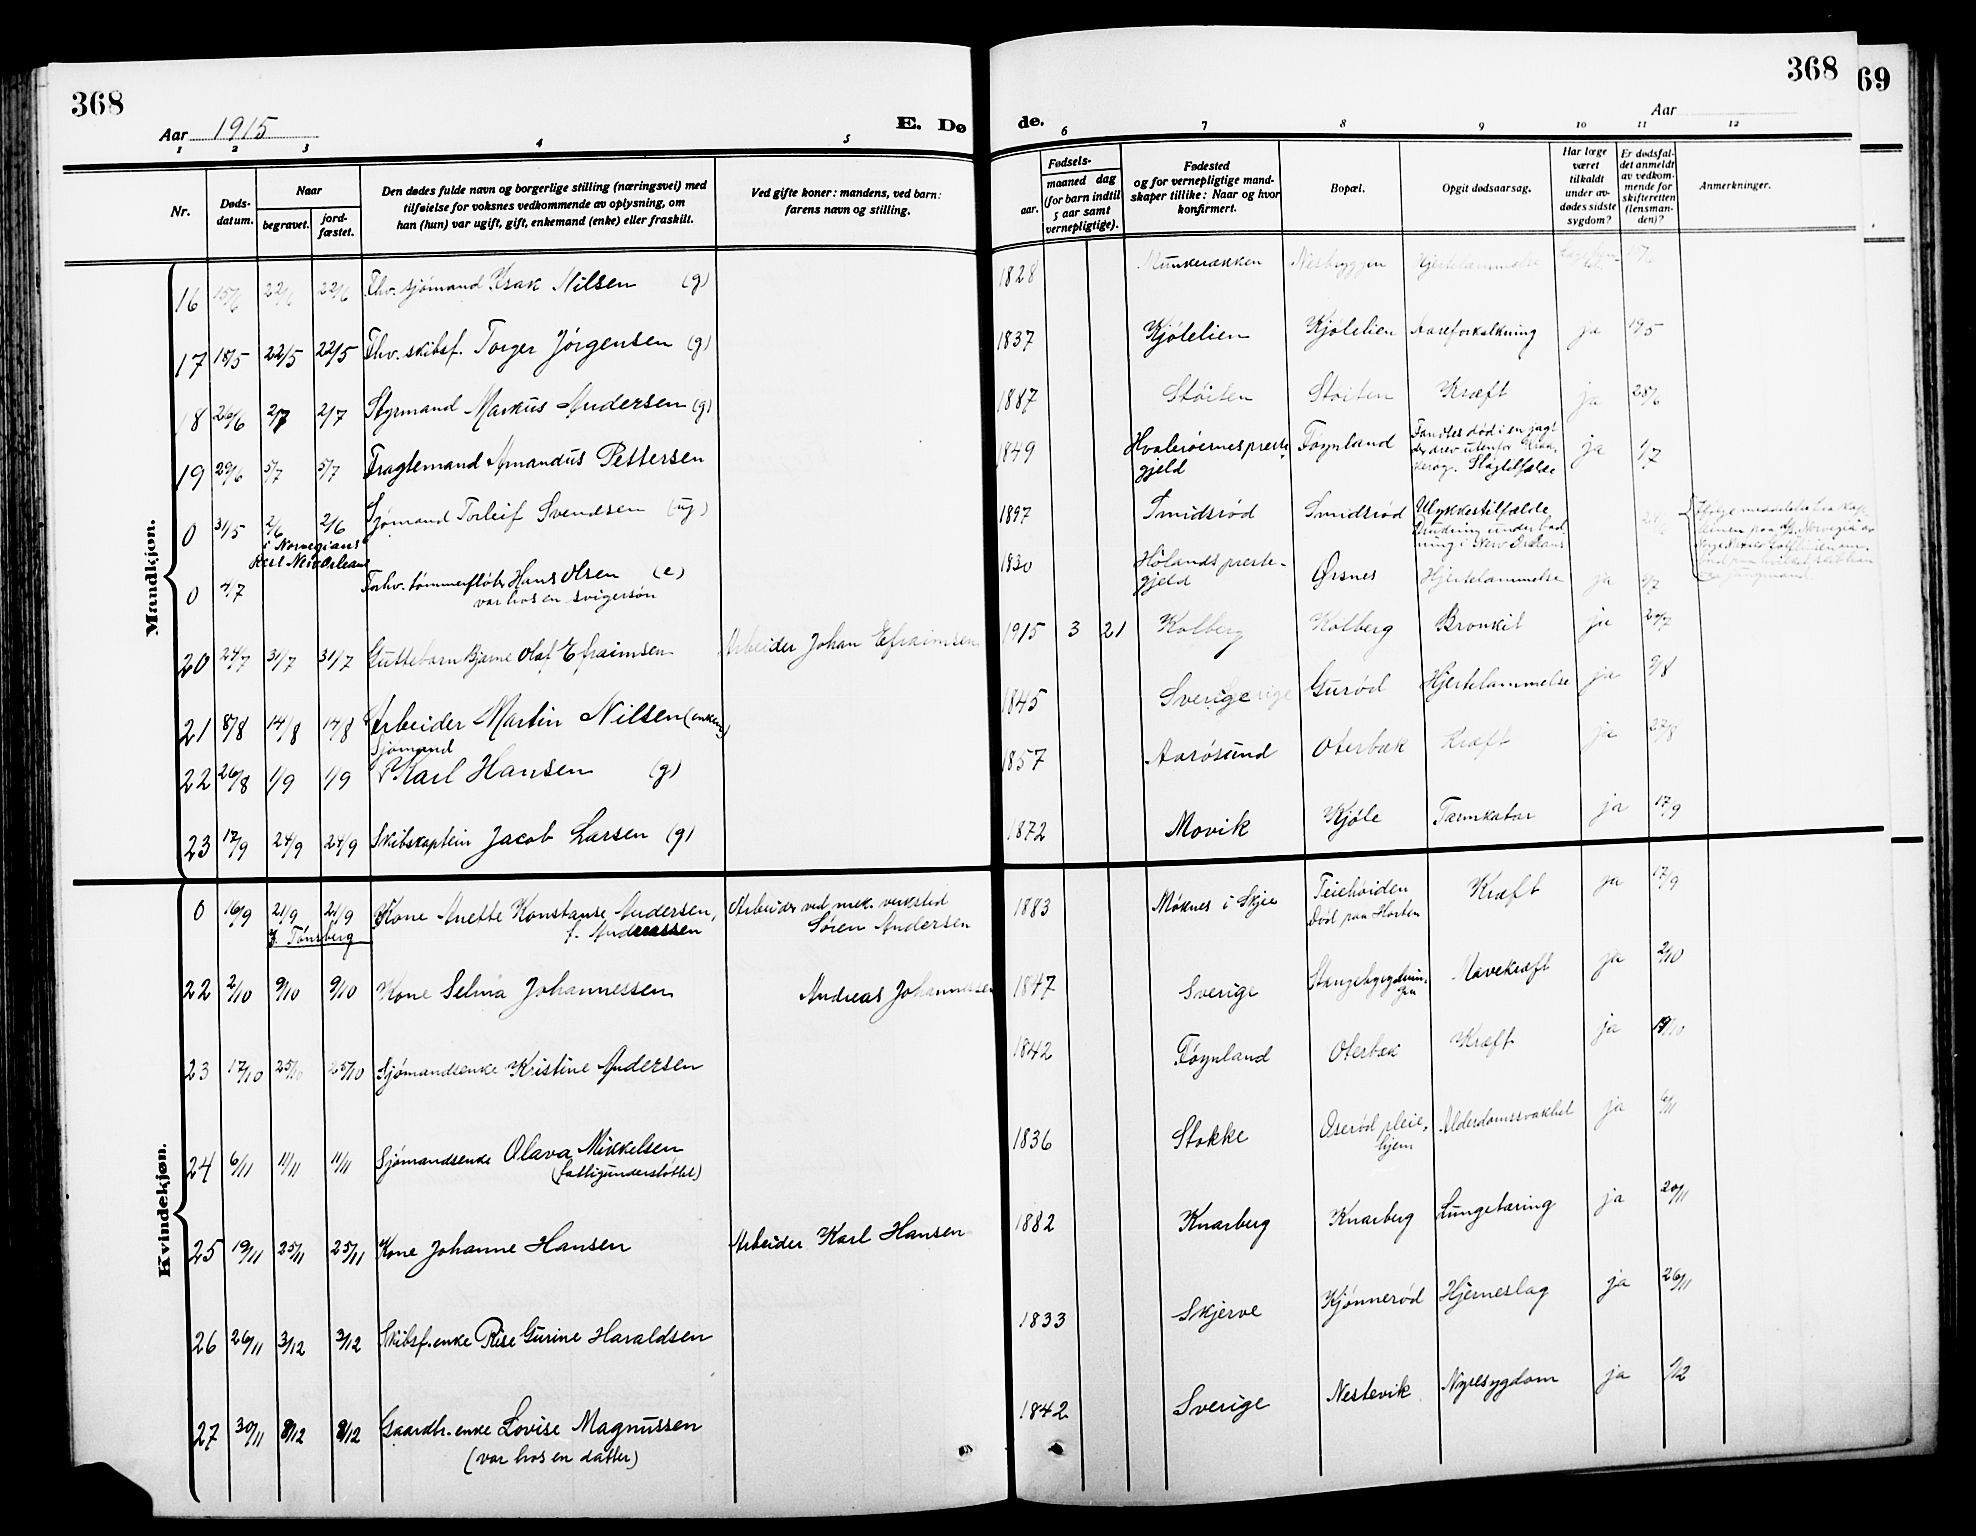 368
Aar 1915
E. Dø
1 2 3 4 5
Nr.
Døds-
datum.
Naar
begravet.
jord-
fæstet.
Den dødes fulde navn og borgerlige stilling (næringsvei) med
tilføielse for voksnes vedkommende av oplysning, om
han (hun) var ugift, gift, enkemand (enke) eller fraskilt.
Ved gifte koner: mandens, ved barn:
farens navn og stilling.
Mandkjøn.
16 15/6 22/6 22/6 Fhv. sjømand Isak Nilsen (g)
17 18/5 22/5 22/5 Fhv. skibsf. Torger Jørgensen (g)
18 26/6 2/7 2/7 Styrmand Markus Andersen (g)
19 29/6 5/7 5/7 Fragtemand Amandus Pettersen
0 31/5 2/6 2/6 Sjømand Torleif Svendsen (ug)
i Norwegians
New Orleans
0 2/7 Forhv. tømmerfløter Hans Olsen (e)
var hos en svigersøn
20 24/7 31/7 31/7 Guttebarn Bjarne Olaf Efraimsen Arbeider Johan Efraimsen
21 8/8 14/8 14/8 Arbeider Martin Nilsen (enkem)
Sjømand
22 26/8 1/9 1/9 Karl Hansen (g)
23 17/9 24/9 24/9 Skibskaptein Jacob Larsen (g)
Kvindekjøn.
0 16/9 21/9 21/9 Kone Anette Konstanse Andersen, Arbeider ved mek. verksted
Tønsberg f. Andreassen Søren Andersen
22 2/10 9/10 9/10 Kone Selma Johannessen Andreas Johannessen
23 17/10 25/10 25/10 Sjømandsenke Kristine Andersen
24 6/11 11/11 11/11 Sjømandsenke Olava Mikkelsen
(fattigunderstøttet)
25 19/11 25/11 25/11 Kone Johanne Hansen Arbeider Karl Hansen
26 26/11 3/12 3/12 Skibsf. enke Rise Gurine Haraldsen
27 30/11 8/12 8/12 Gaardbr. enke Lovise Magnussen
(var hos en datter)
368
69
Aar
de.
6 7 8 9 10 11 12
Fødsels-
aar.
maaned dag
(for barn indtil
5 aar samt
vernepligtige).
Fødested
og for vernepligtige mand-
skaper tillike: Naar og hvor
konfirmert.
Bopæl.
Opgit dødsaarsag.
Har læge
været
tilkaldt
under av-
dødes sidste
sygdom?
Er dødsfal-
det anmeldt
av vedkom-
mende for
skifteretten
(lensman-
den)?
Anmerkninger.
1828 Munkerækken Nesbryggen Hjertelammelse
1837 Kjølelien Kjølelien Aareforkalkning ja 19/5
1887 Støiten Støiten Kræft ja 28/6
1849 Hvalerøernes preste-
gjeld Føynland Fandtes død i en jagt
der drev utenfor
Slagtilfælde ja 1/7
1897 Smidsrød Smidsrød Ulykkestilfælde,
Drukning under bad-
ning i New Orleans
1830 Hølands preste-
gjeld Ørsnes Hjertelammelse ja 5/7
1915 3 21 Kolberg Kolberg Bronkit ja 29/7
1845 Sverige Gurød Hjertelammelse ja 9/8
1857 Aarøsund Oterbæk Kræft ja 27/8
1872 Movik Kjøle Tarmkatar ja 17/9
1883 Møknes i Skjee Teiehøiden
Død paa Horten Kræft ja 17/9
1847 Sverige Mavekræft ja 2/10
1842 Føynland Oterbæk Kræft ja 19/10
1836 Stokke Oserød pleie-
hjem Alderdomssvakhet ja 6/11
1882 Knarberg Knarberg Lungetæring ja 20/11
1833 Skjerve Kjønnerød Hjerneslag ja 26/11
1842 Sverige Nestevik Nyresygdom ja 1/12